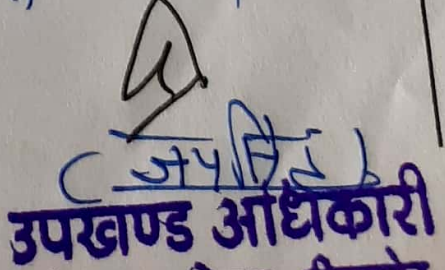 (जयसिंह)
उपखण्ड अधिकारी